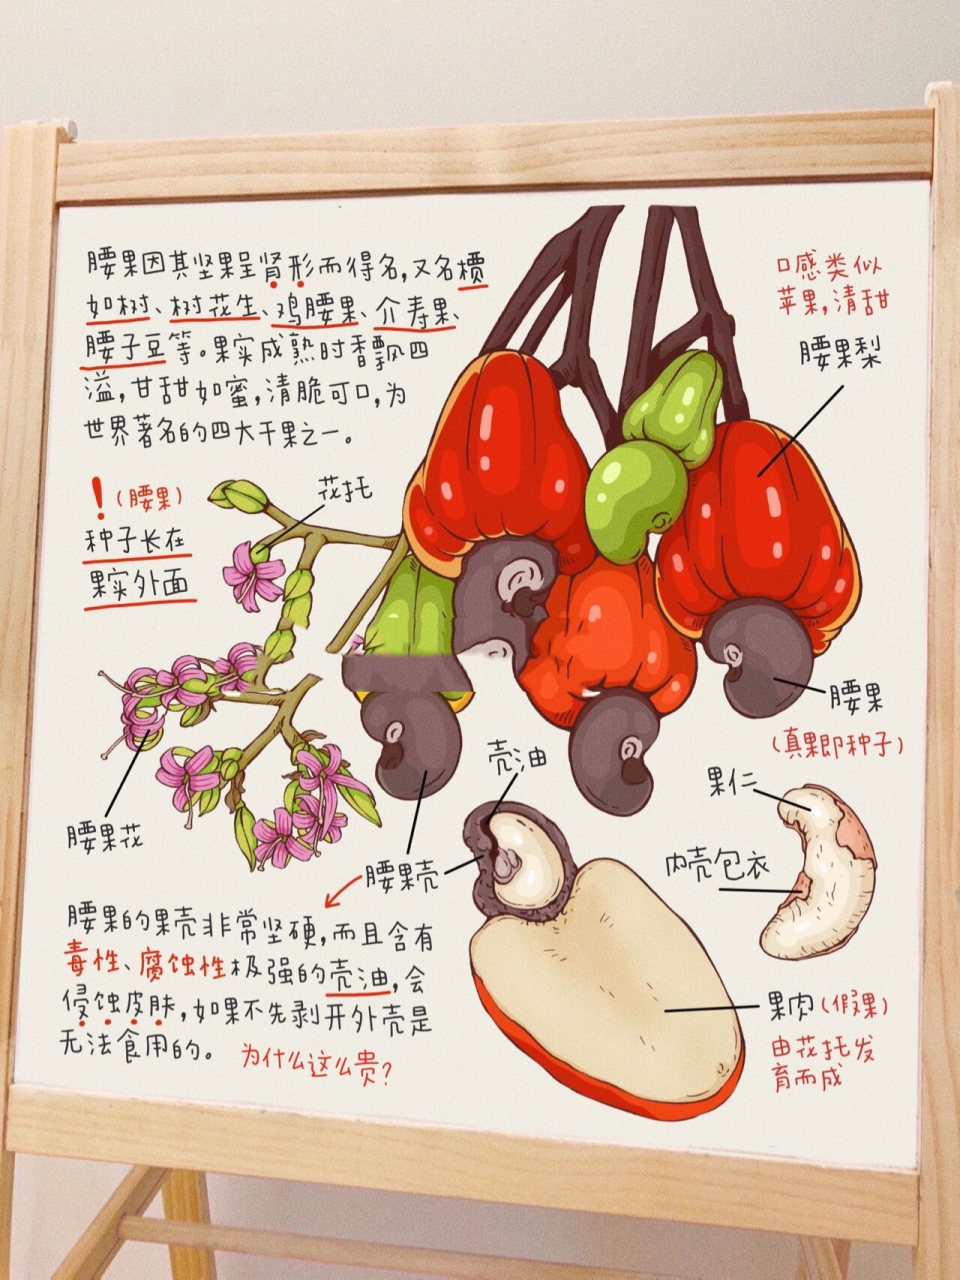 腰果因其坚果呈肾形而得名,又名槚
如树、树花生、鸡腰果、介寿果、
腰子豆等。果实成熟时香飘四
溢,甘甜如蜜,清脆可口,为
世界著名的四大干果之一。
口感类似
苹果,清甜
腰果梨
!(腰果)
种子长在
果实外面
花托
腰果
(真果即种子)
壳油
果仁
腰果花
内壳包衣
腰果壳
腰果的果壳非常坚硬,而且含有
毒性、腐蚀性极强的壳油,会
侵蚀皮肤,如果不先剥开外壳是
无法食用的。
为什么这么贵?
果肉(假果)
由花托发
育而成